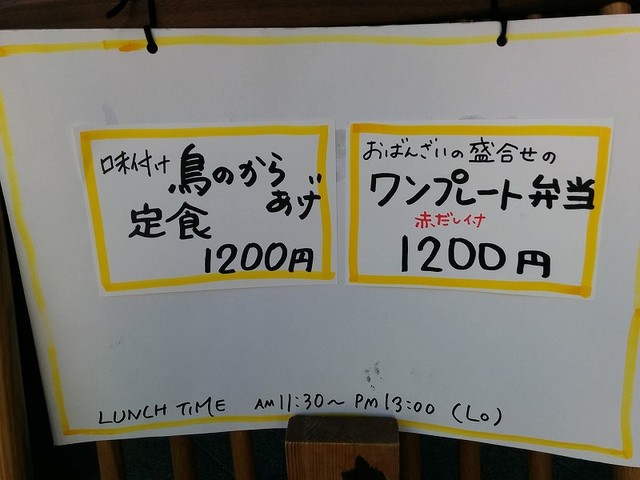 味付け 鳥のから
あげ
定食
1200円
おばんざいの盛合せの
ワンプレート弁当
赤だし付
1200円
LUNCH TIME AM11:30〜PM13:00 (Lo)